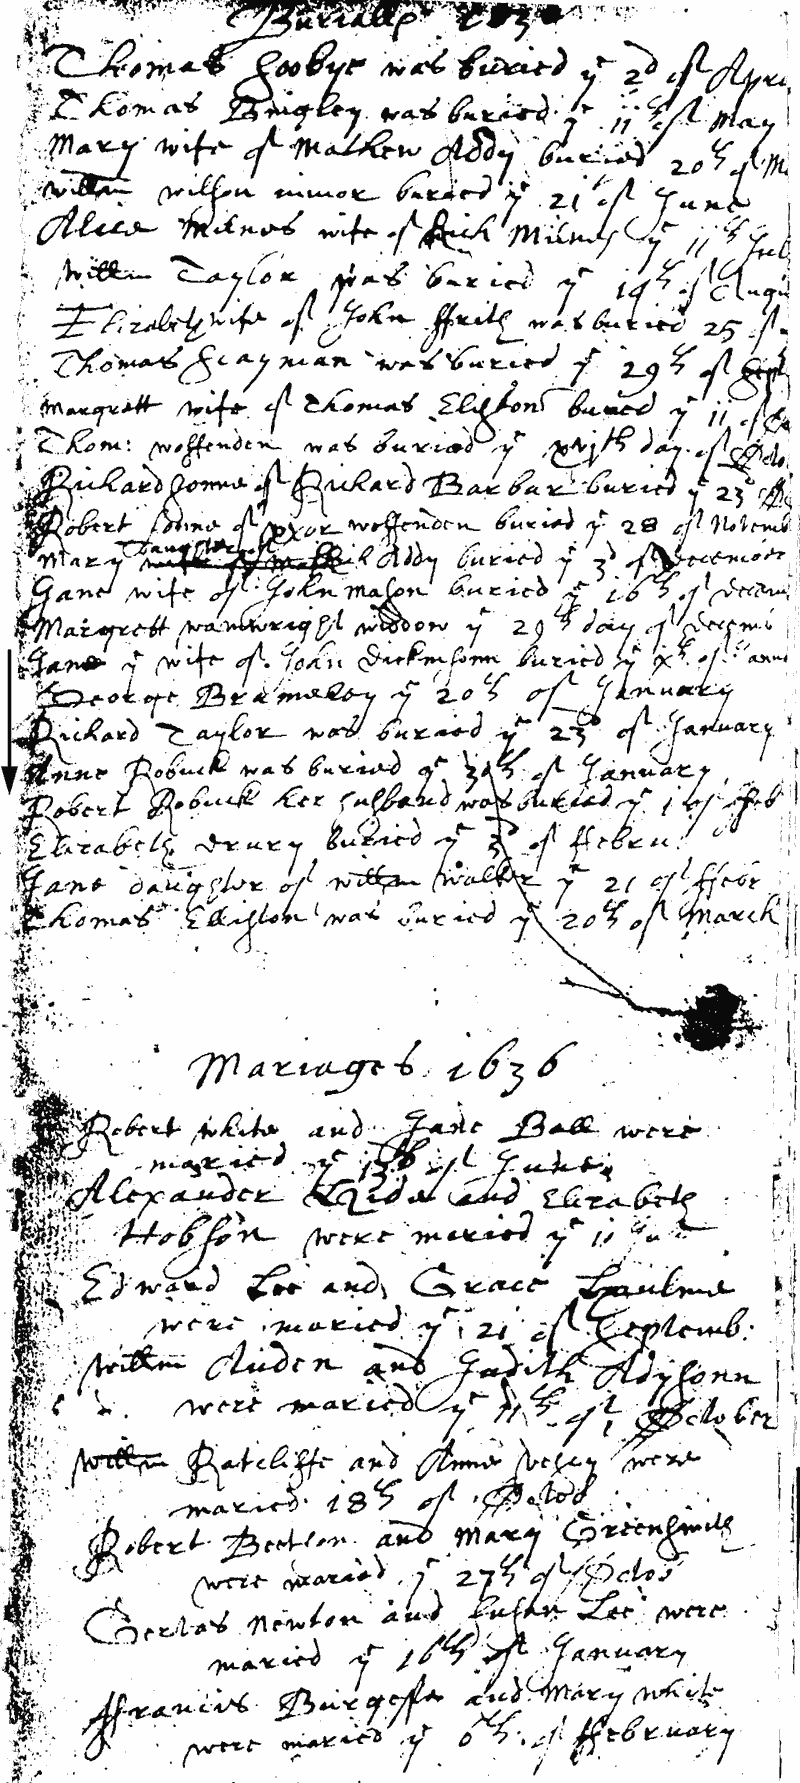 Burialls 163
Thomas Goobye was buried ye 2d of Apri
Thomas Bingley was buried ye 11th of May
Mary wife of Mathew Addy buried 20th of M
willm wilson minor buried ye 21 of June
Alice Milnes wife of Rich Milnes ye 11th Jul
willm Taylor was buried ye 19th of Augu
Elizabeth wife of John ffrith was buried 25 of
Thomas Hayman was buried ye 29th of Sept
Margrett wife of Thomas Ellison buried ye 11 of
Thom: woffenden was buried ye xvjth day of Octo
Richard sonne of Richard Barbur buried ye 23
Robert sonne of uxor woffenden buried ye 28 of Novemb
Mary daughter of Addy buried ye 3d of Decembre
Jane wife of John Mason buried ye 16th of Decem
Margrett wainwright widdow ye 29th day of Decemb
Jane ye wife of John Dickinsonn buried ye xth of Janu
George Brameley ye 20th of January
Richard Taylor was buried ye 23d of January
Anne Robuck was buried ye 30th of January
Robert Robuck her husband was buried ye 1 of ffeb
Elizabeth Drury buried ye 3d of ffebru
Jane daughter of willm walker ye 21 of ffebr
Thomas Ellison was buried ye 20th of March
Mariages 1636
Robert white and Jane Ball were
maried ye 13th of June
Alexander and Elizabeth
Hobson were maried ye 11 Ju
Edward Lee and Grace
were maried ye 21 of Septemb:
willm Auden and Judith Adysonn
were maried ye 11th of October
willm Ratcliffe and Anne were
maried 18th of Octob
Robert Beeton and Mary Greensmith
were maried ye 27th of Octob
Gervas Newton and Susan Lee were
maried ye 16th of January
ffrancis Burgesse and Mary white
were maried ye 6th of ffebruary